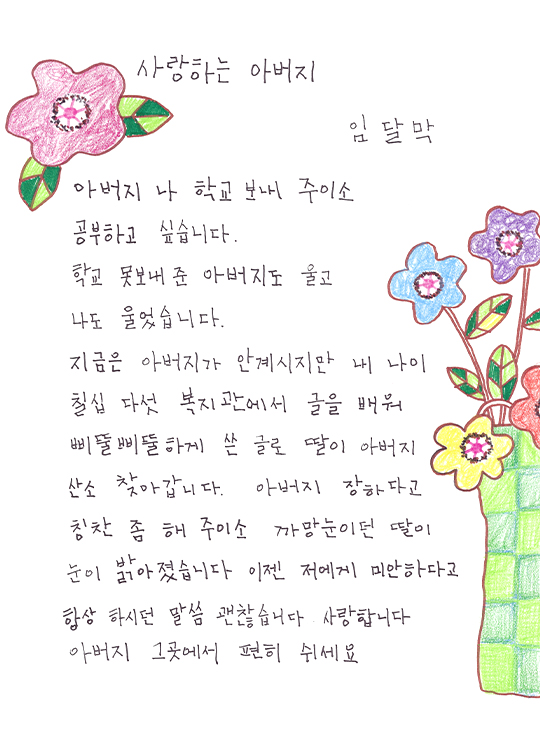 사랑하는 아버지
임달막
아버지 나 학교 보내 주이소
공부하고 싶습니다.
학교 못보내 준 아버지도 울고
나도 울었습니다.
지금은 아버지가 안계시지만 내 나이
칠십 다섯 복지관에서 글을 배워
삐뚤삐뚤하게 쓴 글로 딸이 아버지
산소 찾아갑니다. 아버지 장하다고
칭찬 좀 해 주이소 까망눈이던 딸이
눈이 밝아졌습니다 이젠 저에게 미안하다고
항상 하시던 말씀 괜찮습니다 사랑합니다
아버지 그곳에서 편히 쉬세요